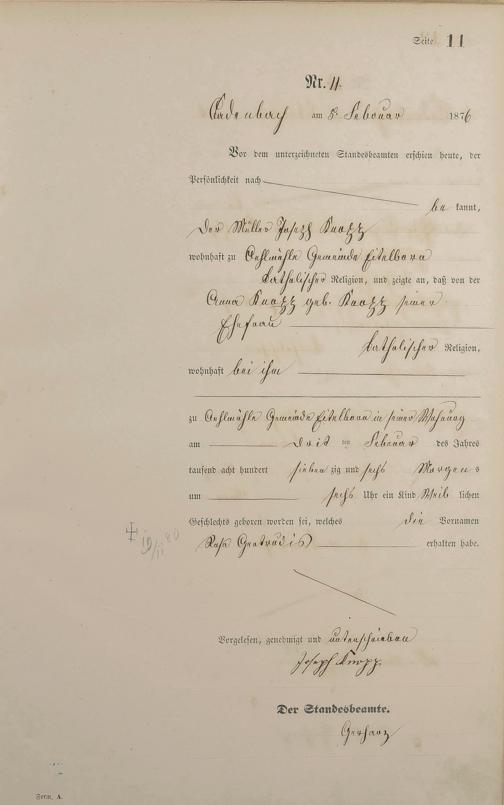 Seite 11
Nr. 11.
Cadenbach am 5. Februar 1876
Vor dem unterzeichneten Standesbeamten erschien heute, der
Persönlichkeit nach
be kannt,
der Müller Joseph Knopp
wohnhaft zu Oehlmühle Gemeinde Eitelborn
katholischer Religion, und zeigte an, daß von der
Anna Knopp geb. Knopp seiner
Ehefrau
katholischer Religion,
wohnhaft bei ihm
zu Oehlmühle Gemeinde Eitelborn in seiner Wohnung
am Februar des Jahres
tausend acht hundert sieben zig und sechs Morgen s
um sechs Uhr ein Kind Weib lichen
Geschlechts geboren worden sei, welches die Vornamen
Rosa Gertrudis erhalten habe.
Vorgelesen, genehmigt und unterschrieben
Joseph Knopp.
Der Standesbeamte.
Gerharz
Form. A.